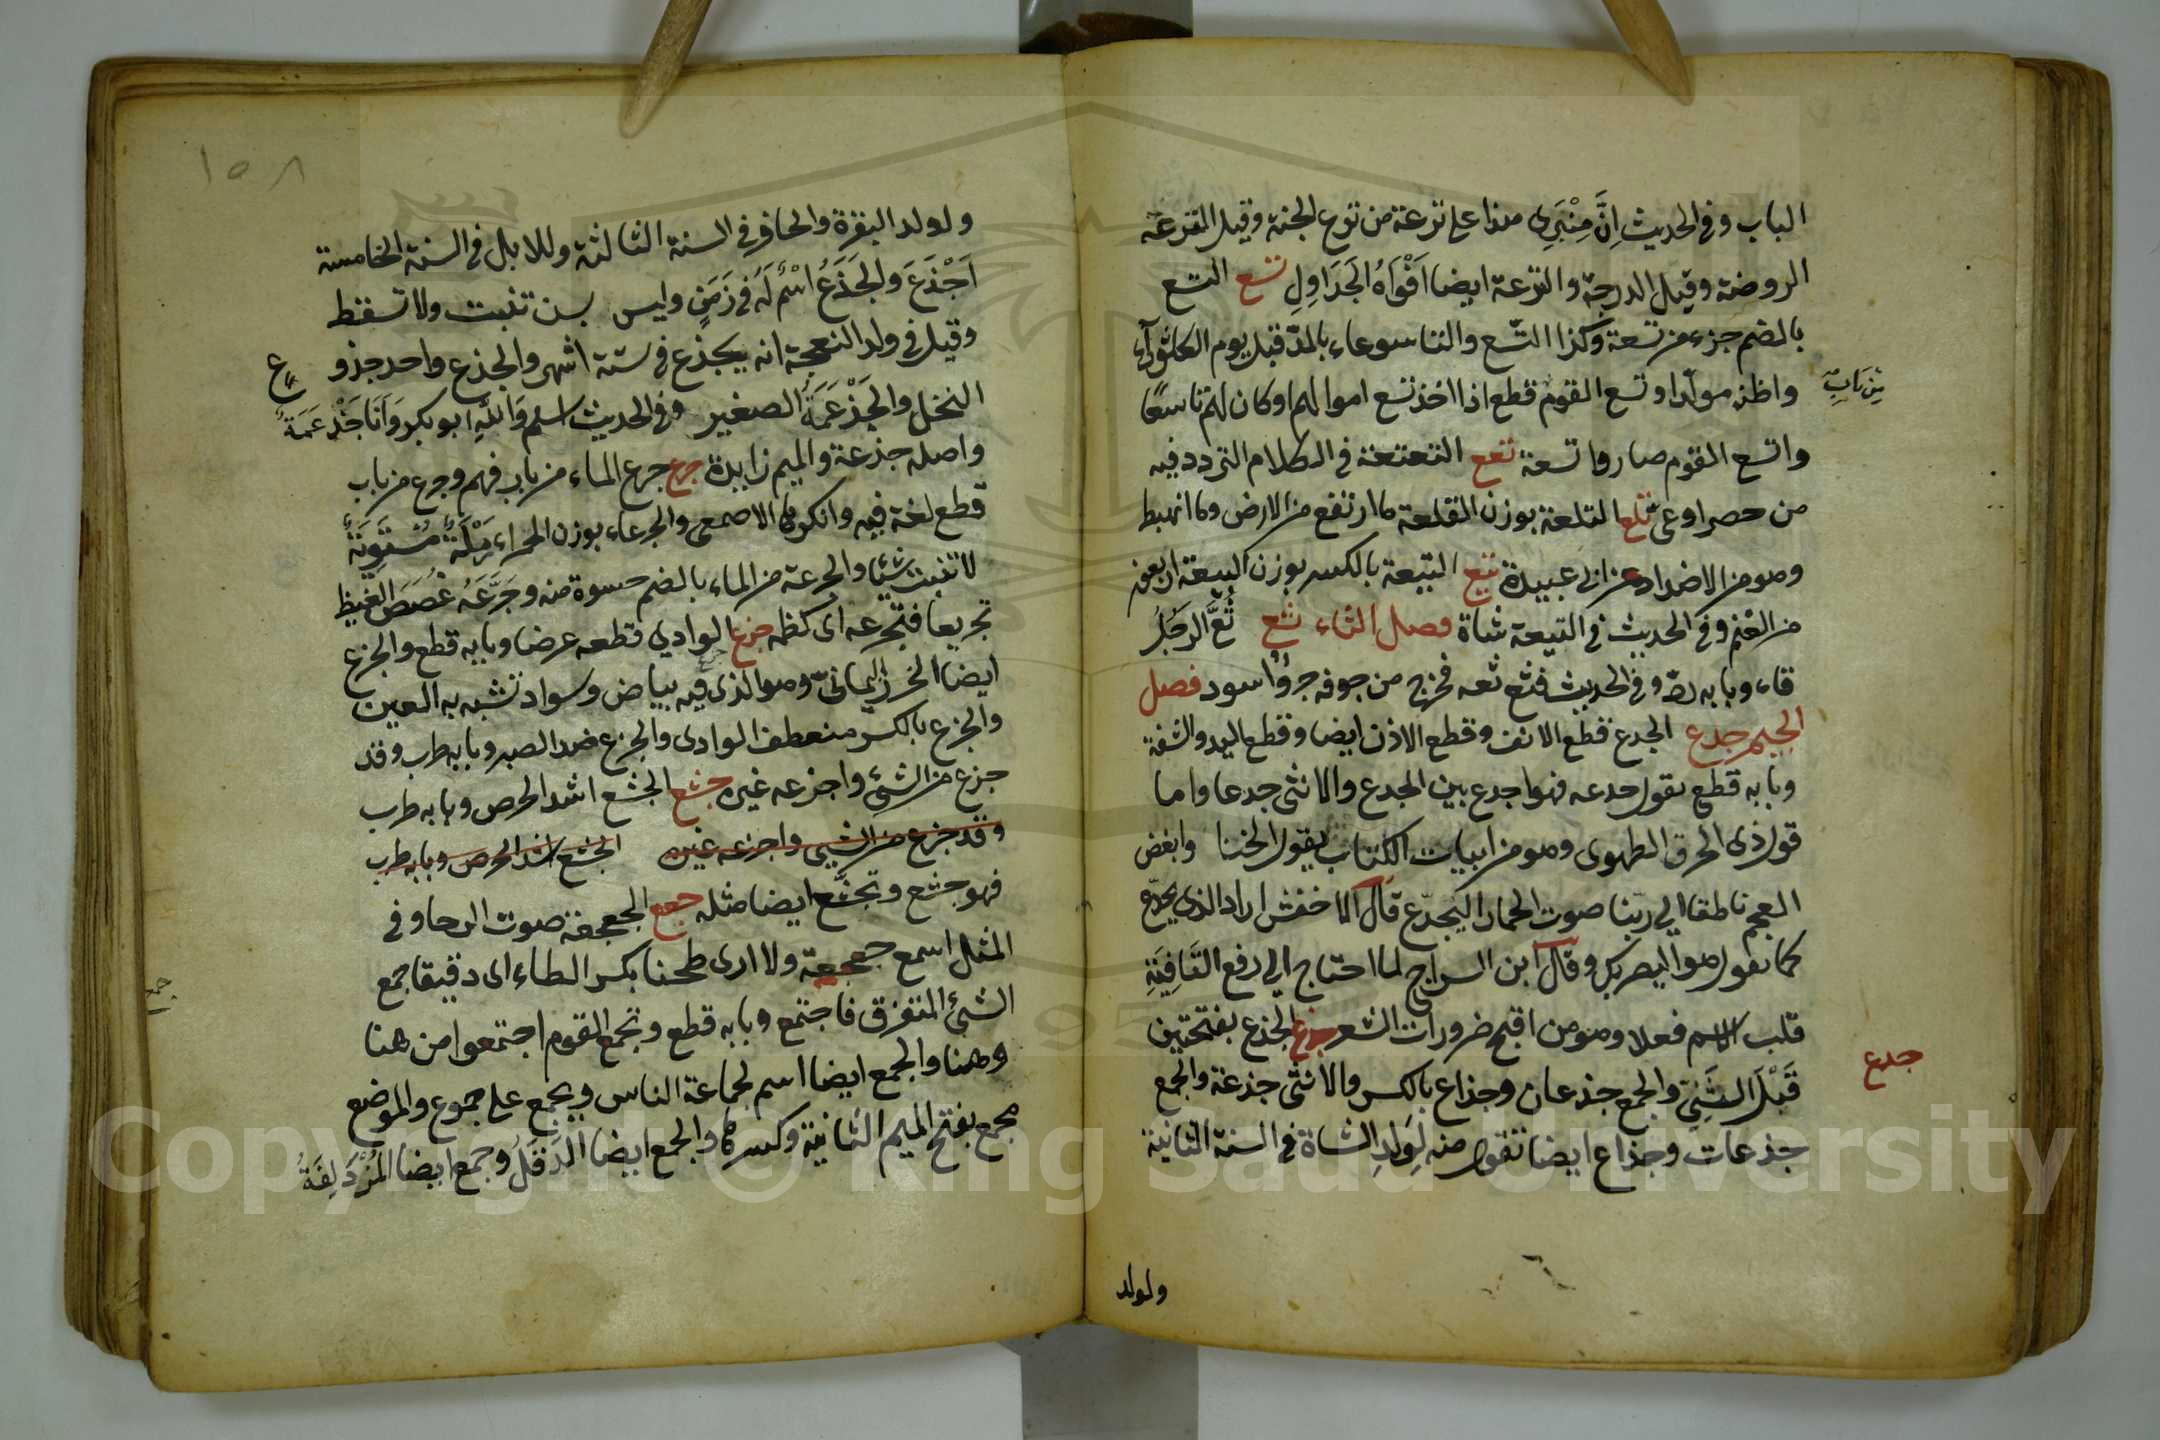 الباب وفي الحديث اِنَّ مِنْبَرِى هذا على ترعة من ترع الجنة وقيل الترعة
الروضة وقيل الدرجة والترعة ايضا اَفْوَاهُ الجَدَاوِلِ تسع التسع
بالضم جزء من تسعة وكذا التسع والتاسوعاء بالمدّ قبل يوم العاشوراء
واظنه مولّدا وتسع القوم قطع اذا اخذ تسع اموالهم او كان لهم تاسعًا
مِنْ بَابِ
واتسع القوم صاروا تسعة تعع التعتعة في الكلام التردد فيه
من حصر او عي تلع التلعة بوزن القلعة ما ارتفع من الارض وما انهبط
وهو من الاضداد عن ابي عبيدة تيع التيعة بالكسر بوزن البيعة اربعون
من الغنم وفي الحديث في التيعة شاة فصل الثاء ثع ثَعَّ الرجلُ
قاء وبابه ردّ وفي الحديث فثع ثعه فخرج من جوفه جروٌ اسود فصل
الجيم جدع الجدع قطع الانف وقطع الاذن ايضا وقطع اليد والشفة
وبابه قطع تقول جدعه فهو اجدع بين الجدع والانثى جدعا واما
قول ذى الخرق الطهوى وهو من ابيات الكتاب يقول الخنا وابغض
العجم ناطقا الي ربّنا صوت الحمار اليجدّع قال الاخفش اراد الذي يجدّع
كما تقول هو اليضربك وقال ابن السراج لما احتاج الي رفع القَافِيَةِ
قلب الاسم فعلا وهو من اقبح ضرورات الشعر جذع الجذع بفتحتين
جدع
قَبْلَ الثَنِيّ والجمع جذعان وجذاع بالكسر والانثى جذعة والجمع
جذعات وجذاع ايضا تقول منه لِوَلَدِ الشاة في السنة الثانية
ولولد
١٥٨
ولولد البقرة والحافر في السنة الثالثة وللابل في السنة الخامسة
اَجْذَعَ والجَذَعُ اسْمٌ لَهُ في زَمَنٍ وليس بسن تنبت ولا تسقط
وقيل في ولد النعجة انه يجذع في ستة اشهر والجذع واحد جذوع
النخل والجَذْعَمَةُ الصغير وفي الحديث اسلم وَاللهِ ابو بكر وَاَنَا جَذْعَمَةٌ
واصله جذعة والميم زايدة جرع جرع الماء من باب فهم وجرع من باب
قطع لغة فيه وانكرها الاصمعي والجرعاء بوزن الحمراء رَمْلَةٌ مُسْتَوِيَةٌ
لا تنبت شيئا والجرعة من الماء بالضم حسوة منه وجَرَّعَهُ غُصَصَ الغَيْظِ
تجريعا فتجرعه اى كظمه جزع الوادي قطعه عرضا وبابه قطع والجزع
ايضا الخرز اليمانيّ وهو الذى فيه بياض وسواد تشبه به العين
والجزع بالكسر منعطف الوادى والجزع ضد الصبر وبابه طرب وقد
جزع من الشئ واجزعه غيره جشع الجشع اشد الحرص وبابه طرب
وقد جزع من الشيى واجزعه غيره الجشع اشد الحرص وبابه طرب
فهو جشع وتجشّع ايضا مثله جعع الجعجعة صوت الرحا وفي
المثل اسمع جعجعة ولا ارى طحنا بكسر الطاء اى دقيقا جمع
الشئ المتفرق فاجتمع وبابه قطع وتجمع القوم اجتمعوا من هنا
وهنا والجمع ايضا اسم لجماعة الناس ويجمع على جموع والموضع
مجمع بفتح الميم الثانية وكسرها والجمع ايضا الدَقَلُ وجمع ايضا المُزْدَلِفَةُ
Copyright © King Saud University